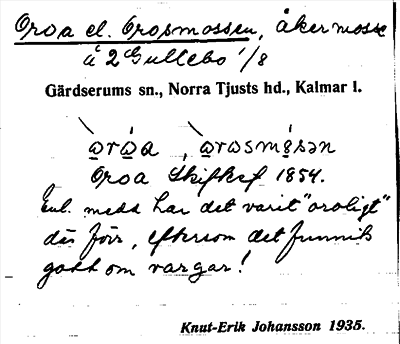 Oroa el. Orosmossen, åkermosse
å 2 Gullebo 1/8
Gärdserums sn., Norra Tjusts hd., Kalmar l.
Oroa Skifteskf 1854.
Enl. medd har det varit "oroligt"
där förr, eftersom det funnits
gott om vargar!
Knut-Erik Johansson 1935.